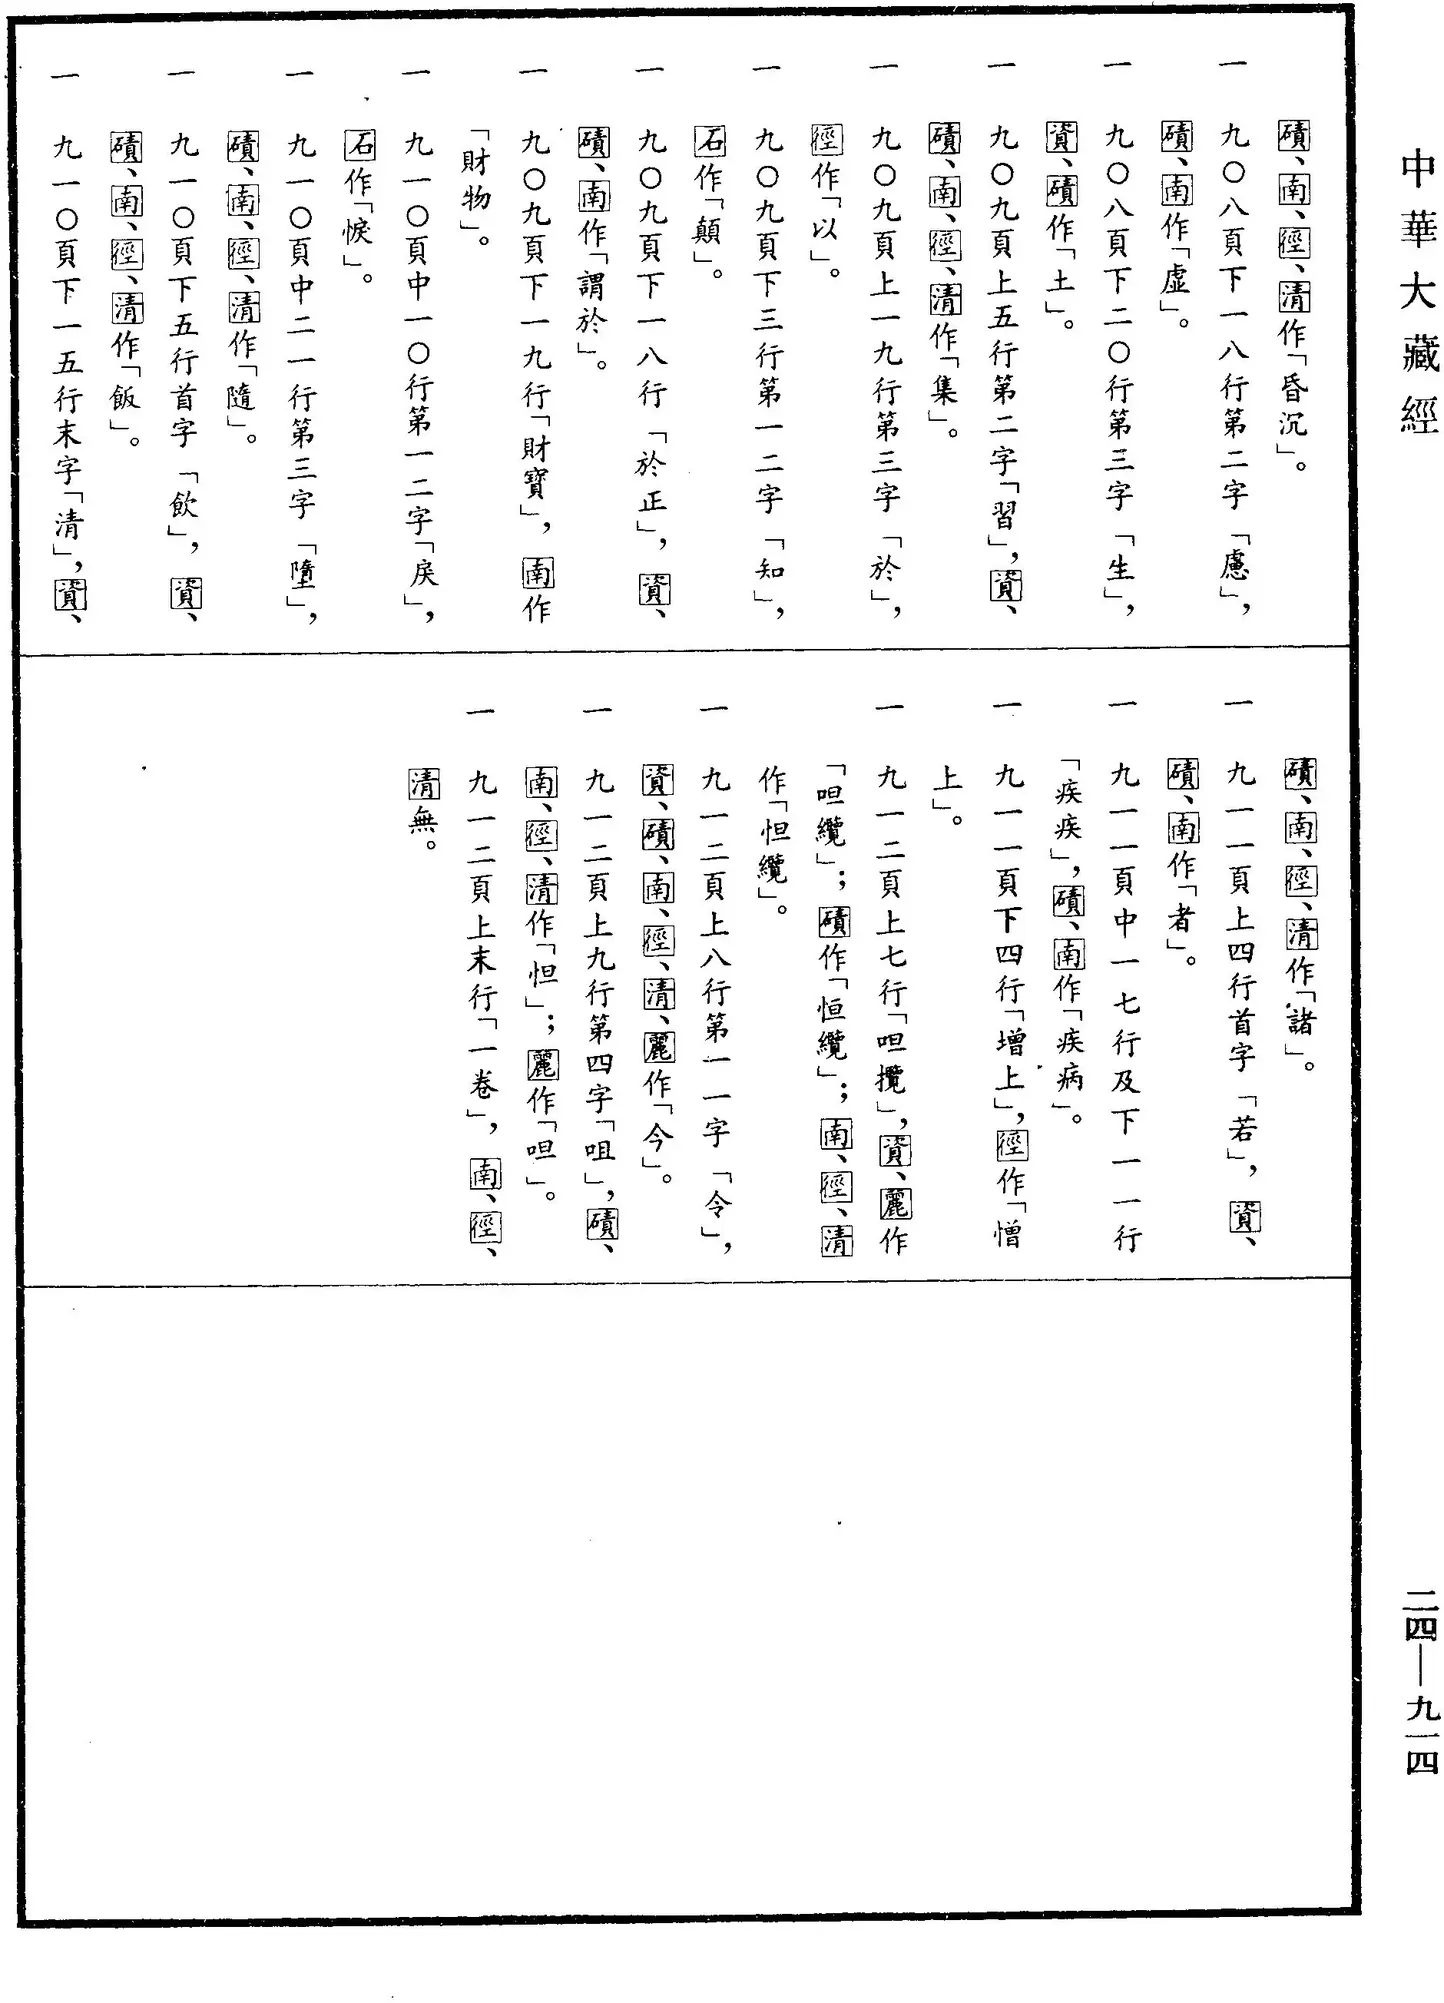 中華大藏經
磧、南、徑、清作「昏沉」。
一　九〇八頁下一八行第二字「慮」，
磧、南作「虛」。
一　九〇八頁下二〇行第三字「生」，
資、磧作「土」。
一　九〇九頁上五行第二字「習」，資、
磧、南、徑、清作「集」。
一　九〇九頁上一九行第三字「於」，
徑作「以」。
一　九〇九頁下三行第一二字「知」，
石作「顛」。
一　九〇九頁下一八行「於正」，資、
磧、南作「謂於」。
一　九〇九頁下一九行「財寶」，南作
「財物」。
一　九一〇頁中一〇行第一二字「戾」，
石作「悷」。
一　九一〇頁中二一行第三字「墮」，
磧、南、徑、清作「隨」。
一　九一〇頁下五行首字「飲」，資、
磧、南、徑、清作「飯」。
一　九一〇頁下一五行末字「清」，資、
磧、南、徑、清作「諸」。
一　九一一頁上四行首字「若」，資、
磧、南作「者」。
一　九一一頁中一七行及下一一行
「疾疾」，磧、南作「疾病」。
一　九一一頁下四行「增上」，徑作「憎
上」。
一　九一二頁上七行「呾攬」，資、麗作
「呾纜」；磧作「恒纜」；南、徑、清
作「怛纜」。
一　九一二頁上八行第一一字「令」，
資、磧、南、徑、清、麗作「今」。
一　九一二頁上九行第四字「咀」，磧、
南、徑、清作「怛」；麗作「呾」。
一　九一二頁上末行「一卷」，南、徑、
清無。
二四—九一四